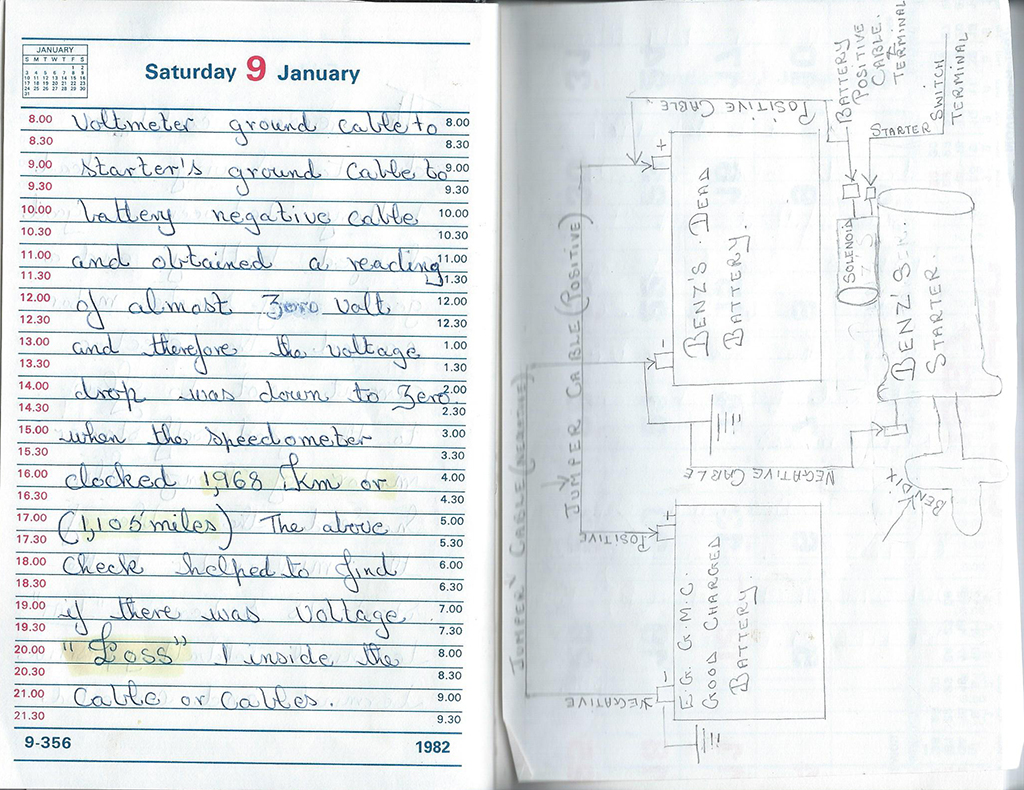 JANUARY
S M T W T F S
1 2
3 4 5 6 7 8 9
10 11 12 13 14 15 16
17 18 19 20 21 22 23
24 25 26 27 28 29 30
31
Saturday 9 January
8.00 Voltmeter ground cable to 8.00
8.30 8.30
9.00 starter's ground cable to 9.00
9.30 9.30
10.00 battery negative cable 10.00
10.30 10.30
11.00 and obtained a reading 11.00
11.30 11.30
12.00 of almost zero volt 12.00
12.30 12.30
13.00 and therefore the voltage 1.00
13.30 1.30
14.00 drop was down to zero 2.00
14.30 2.30
15.00 when the speedometer 3.00
15.30 3.30
16.00 clocked 1,968 Km or 4.00
16.30 4.30
17.00 (1,105 miles) The above 5.00
17.30 5.30
18.00 check helped to find 6.00
18.30 6.30
19.00 if there was voltage 7.00
19.30 7.30
20.00 "Loss" inside the 8.00
20.30 8.30
21.00 cable or cables. 9.00
21.30 9.30
9-356 1982
BATTERY
POSITIVE
CABLE.
TERMINAL
STARTER SWITCH
TERMINAL
POSITIVE CABLE.
+
-
BENZ'S DEAD
BATTERY.
SOLENOID
BENZ'S
STARTER.
BENDIX
NEGATIVE CABLE
JUMPER CABLE (POSITIVE)
JUMPER CABLE (NEGATIVE)
POSITIVE
+
-
E.G. G.M.C.
GOOD CHARGED
BATTERY.
NEGATIVE